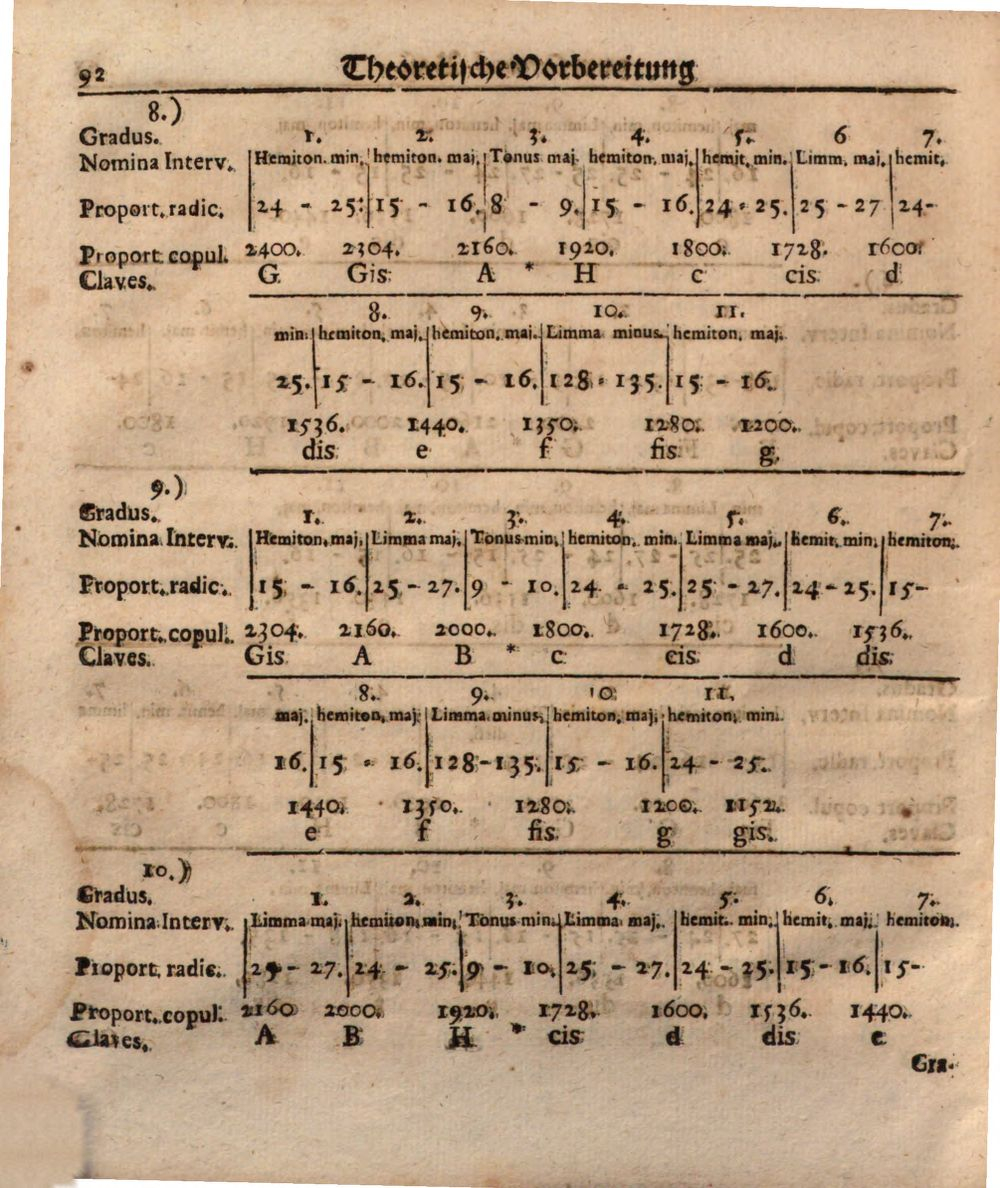 92 Theoretische Vorbereitung
8.)
Gradus. 1. 2. 3. 4. 5. 6 7.
Nomina Interv. Hemiton. min. hemiton. maj. Tonus maj. hemiton. maj. hemit. min. Limm. maj. hemit.
Proport. radic. 24 - 25. 15 - 16. 8 - 9. 15 - 16. 24 - 25. 25 - 27 24-
Proport. copul. 2400. 2304. 2160. 1920. 1800. 1728. 1600.
Claves. G Gis A * H c cis d
8. 9. 10. 11.
min. hemiton. maj. hemiton. maj. Limma minus. hemiton. maj.
25. 15 - 16. 15 - 16. 128 - 135. 15 - 16.
1536. 1440. 1350. 1280. 1200.
dis e f fis g.
9.)
Gradus. 1. 2. 3. 4. 5. 6. 7.
Nomina Interv. Hemiton. maj. Limma maj. Tonus min. hemiton. min. Limma maj. hemit. min. hemiton.
Proport. radic. 15 - 16. 25 - 27. 9 - 10. 24 - 25. 25 - 27. 24 - 25. 15-
Proport. copul. 2304. 2160. 2000. 1800. 1728. 1600. 1536.
Claves. Gis A B * c cis d dis
8. 9. 10 11.
maj. hemiton. maj. Limma minus. hemiton. maj. hemiton. min.
16. 15 - 16. 128-135. 15 - 16. 24 - 25.
1440. 1350. 1280. 1200. 1152.
e f fis g gis.
10.)
Gradus. 1. 2. 3. 4. 5. 6. 7.
Nomina Interv. Limma maj. hemiton. min. Tonus min. Limma maj. hemit. min. hemit. maj. hemitom.
Proport. radic. 25 - 27. 24 - 25. 9 - 10. 25 - 27. 24 - 25. 15 - 16. 15-
Proport. copul. 2160 2000. 1920. 1728. 1600. 1536. 1440.
Claves. A B H * cis d dis e
Gra-